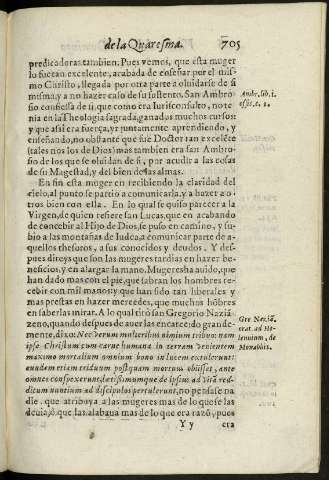 de la Quaresma. 705
predicadoras tambien. Pues vemos, que esta muger
lo fue tan excelente, acabada de enseñar por el mis-
mo Christo, llegada por otra parte a oluidarse de si
misma, y a no hazer caso de su sustento. San Ambro-
sio confiessa de si, que como era Iurisconsulto, note-
nia en la Theologia sagrada, ganados muchos cursos:
y que assi era fuerça, yr juntamente aprendiendo, y
enseñando, no obstante que fue Doctor tan excelēte
(tales nos los de Dios) mas tambien era san Ambro-
sio de los que se oluidan de si, por acudir a las cosas
de su Magestad, y del bien de las almas.
Ambr. lib. 1.
offic. c. 1.
En fin esta muger en recibiendo la claridad del
cielo, al punto se partio a comunicarla, y a hazer a o-
tros bien con ella. En lo qual se quiso parecer a la
Virgen, de quien refiere san Lucas, que en acabando
de concebir al Hijo de Dios, se puso en camino, y su-
bio a las montañas de Iudea, a comunicar parte de a
quellos thesoros, a sus conocidos y deudos. Y des-
pues direys que son las mugeres tardias en hazer be-
neficios, y en alargar la mano. Mugeres ha auido, que
han dado mas con el pie, que sabran los hombres re-
cebir con mil manos: y que han sido tan liberales y
mas prestas en hazer mercedes, que muchos hōbres
en saberlas mirar. A lo qual tirò san Gregorio Naziā
zeno, quando despues de auerlas encarecido grande-
mente, dixo: Nec verum mulieribus nimium tribuo: nam
ipse Christum cum carne humana in terram venientem
maximo mortalium omnium bono in lucem extulerunt:
euudem etiam rediuum postquam mortem obiisset, ante
omnes conspexerunt, lætissimumque de ipsius ad vitā red-
ditum nuntium ad discipulos pertulerunt, no pensase na
die. que atribuya a las mugeres mas de lo que se les
deuia, ò que las alabaua mas de lo que era razō, pues
Gre Naciā.
orat. ad He-
lenium, de
Monachis.
Y y era